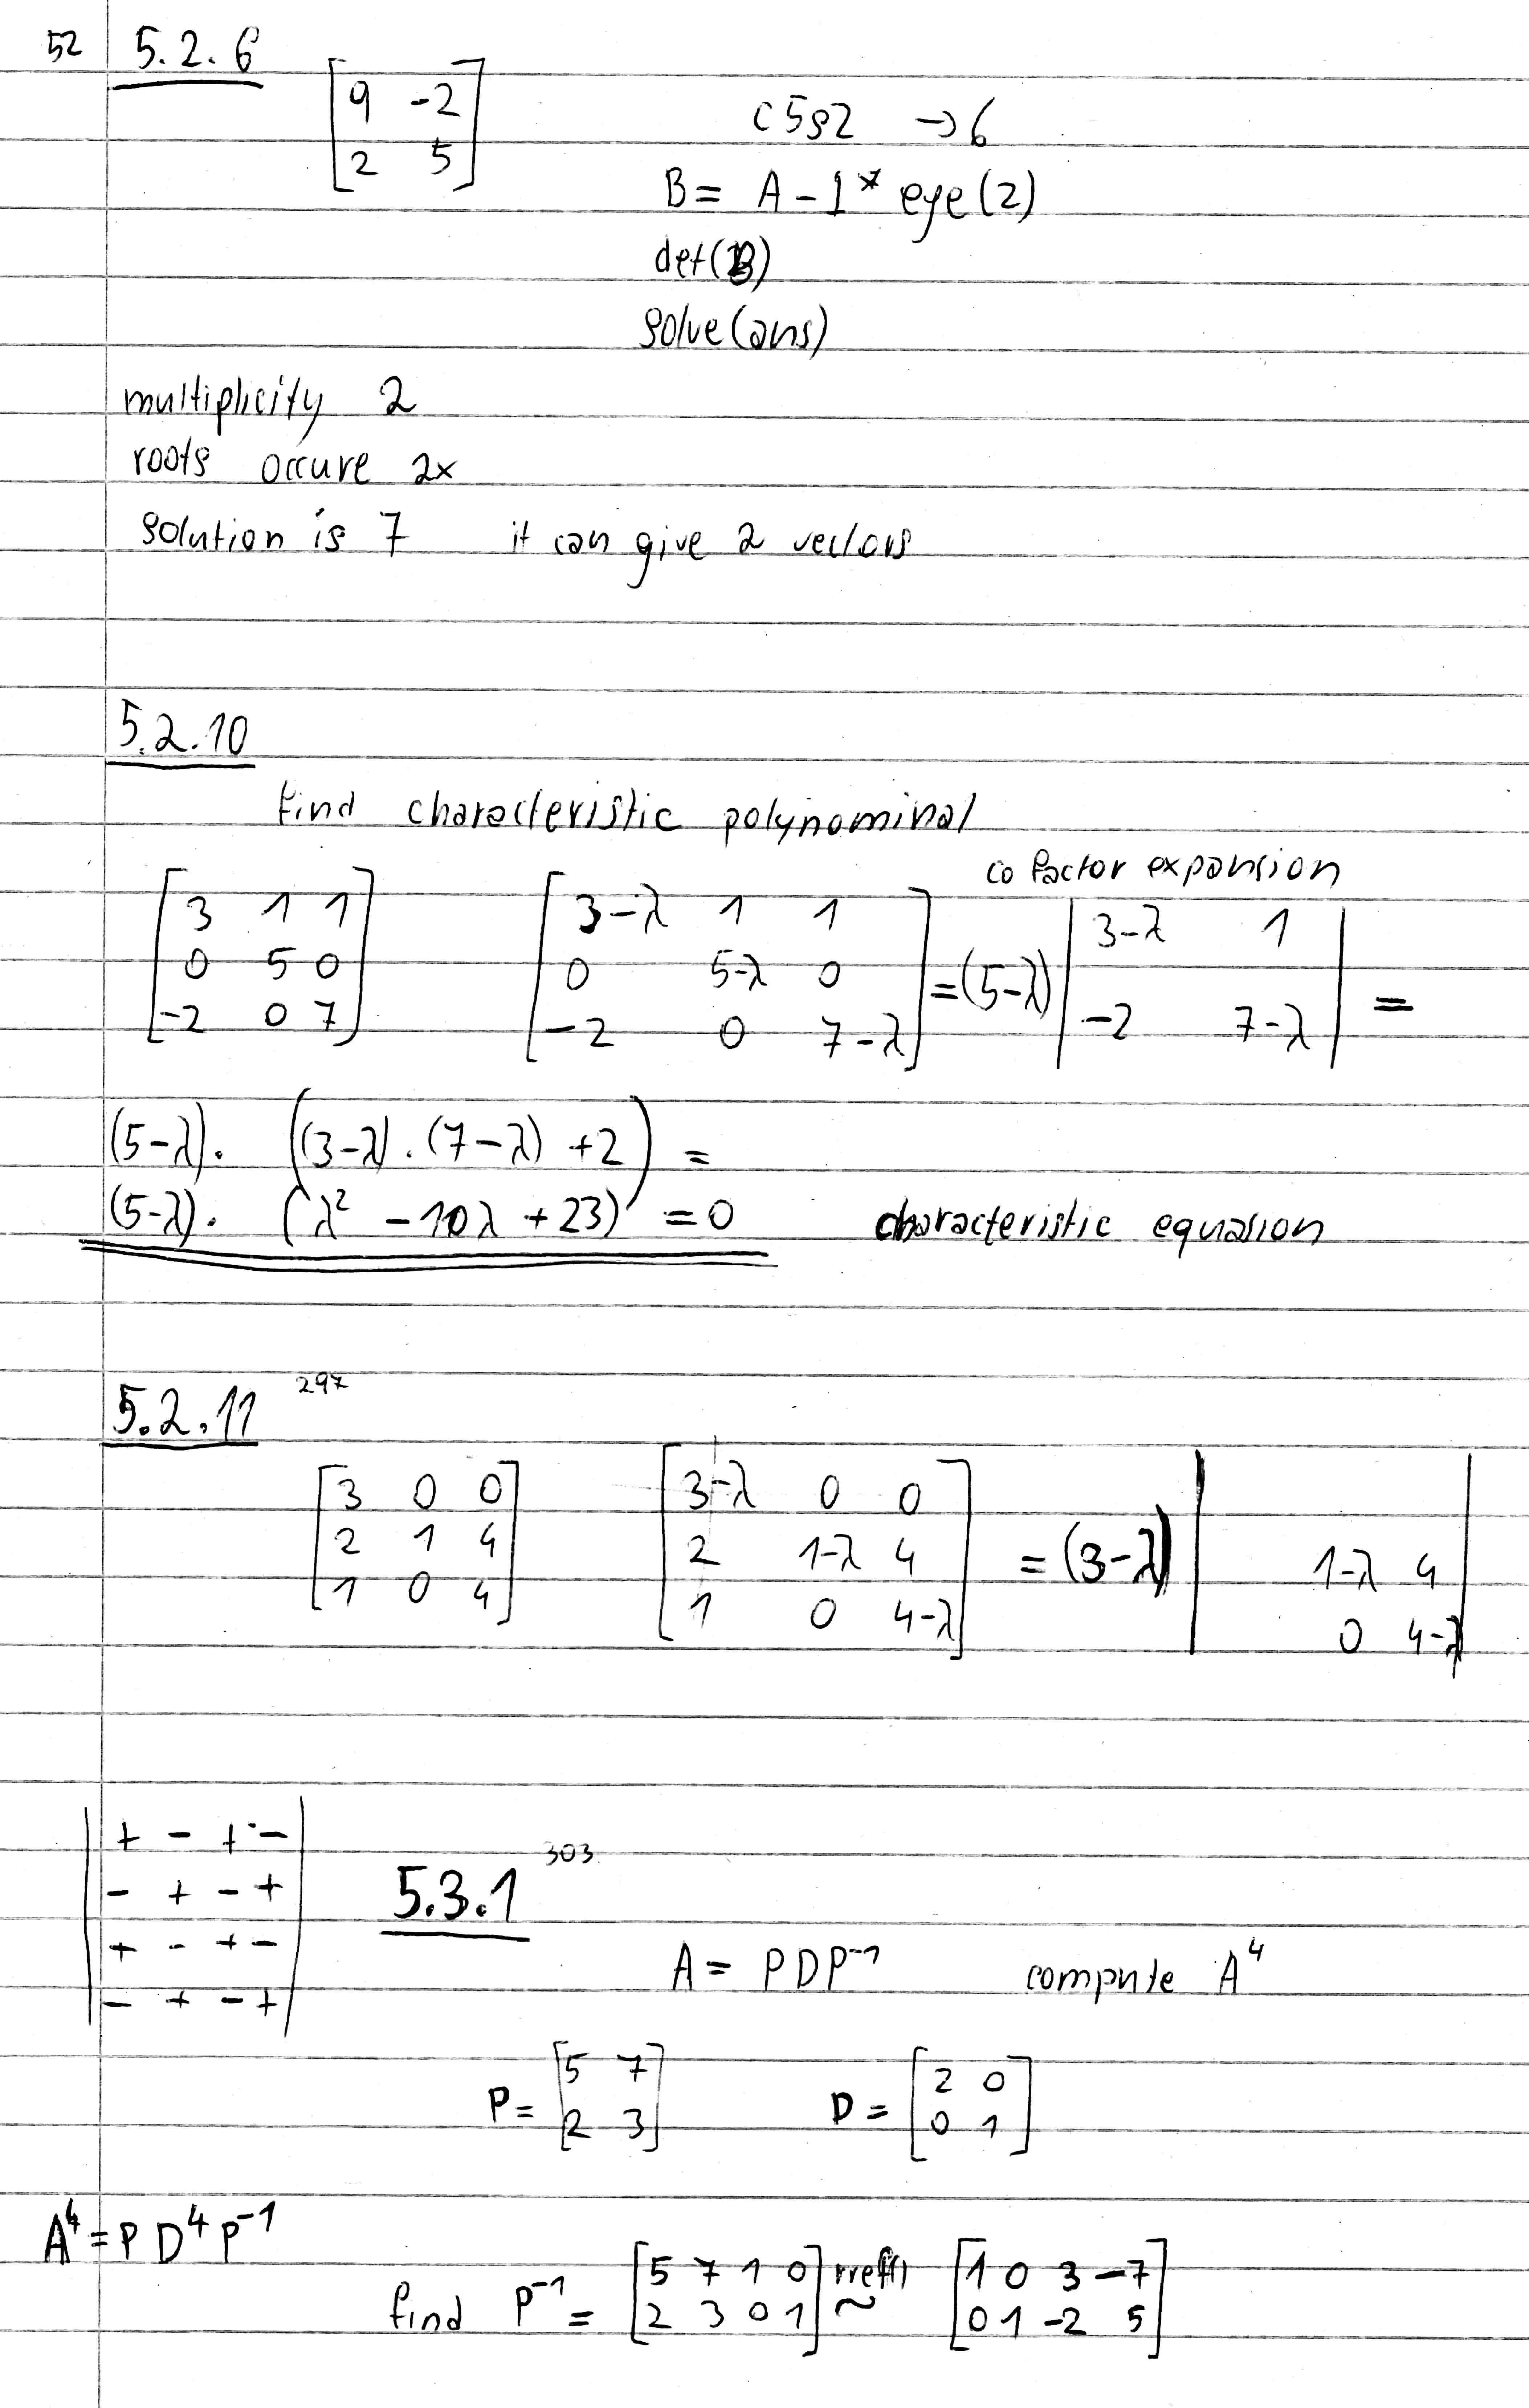 52 5.2.6
[9 -2
2 5]
c5s2 → 6
B = A - 1 * eye(2)
det(B)
solve(ans)
multiplicity 2
roots occure 2x
solution is 7 it can give 2 vectors
5.2.10
find characteristic polynominal
cofactor expansion
[3 1 1
0 5 0
-2 0 7]
[3-λ 1 1
0 5-λ 0
-2 0 7-λ] = (5-λ) |3-λ 1
-2 7-λ| =
(5-λ). ((3-λ).(7-λ) +2) =
(5-λ). (λ² - 10λ + 23) = 0 characteristic equasion
5.2.11 297
[3 0 0
2 1 4
1 0 4]
[3-λ 0 0
2 1-λ 4
1 0 4-λ] = (3-λ) |1-λ 4
0 4-λ|
|+ - + -
- + - +
+ - + -
- + - +|
5.3.1 303
A = PDP⁻¹ compute A⁴
P = [5 7
2 3]
D = [2 0
0 1]
A⁴ = P D⁴ P⁻¹
find P⁻¹ = [5 7 1 0
2 3 0 1] rref() ~ [1 0 3 -7
0 1 -2 5]